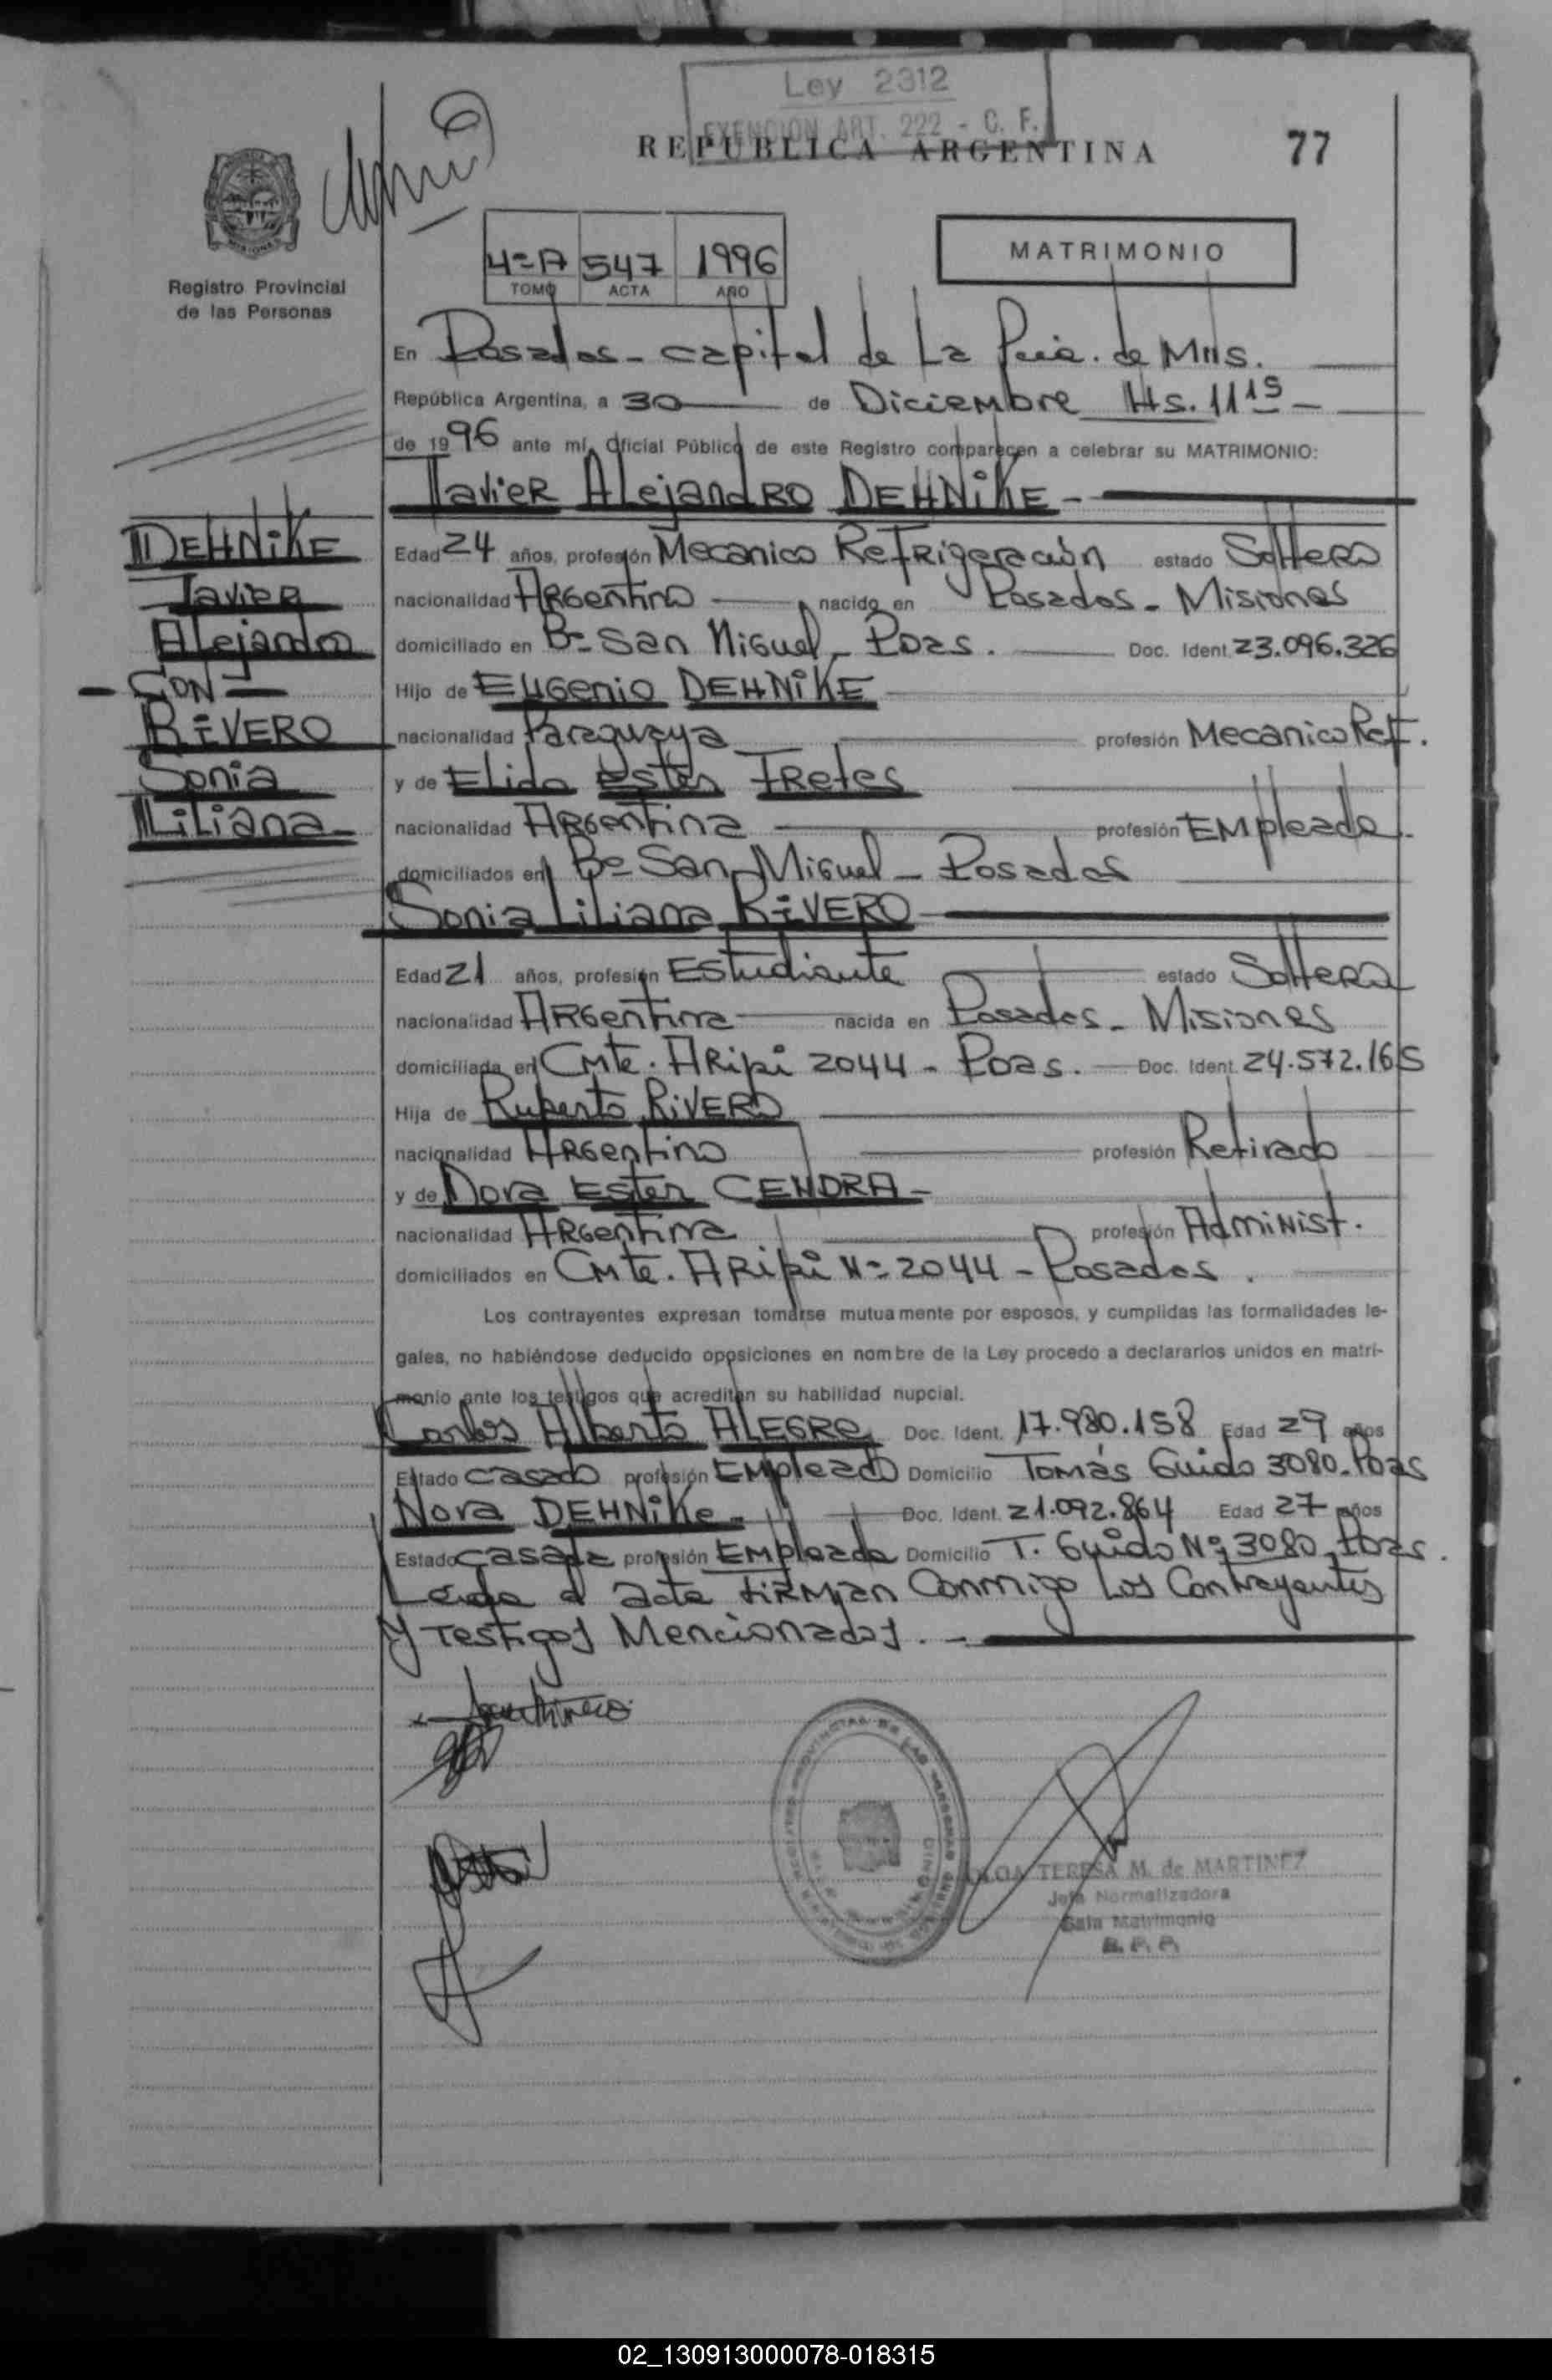 Ley 2312
EXENCION ART. 222 - C. F.
REPUBLICA ARGENTINA
77
4º A 547 1996
TOMO ACTA AÑO
MATRIMONIO
Registro Provincial
de las Personas
En Posadas - capital de La Pcia. de Mnes.
República Argentina, a 30 de Diciembre Hs. 11 15 -
de 1996 ante mí, Oficial Público de este Registro comparecen a celebrar su MATRIMONIO:
Javier Alejandro DEHNiKE -
DEHNiKE
Javier
Alejandro
- CON -
RiVERO
Sonia
Liliana
Edad 24 años, profesión Mecanico Refrigeración estado Soltero
nacionalidad Argentino nacido en Posadas - Misiones
domiciliado en Bº San Miguel - Pdas. Doc. Ident. 23.096.326
Hijo de Eugenio DEHNiKE
nacionalidad Paraguaya profesión Mecanico Ref.
y de Elida Ester Fretes
nacionalidad Argentina profesión Empleada.
domiciliados en Bº San Miguel - Posadas
Sonia Liliana RiVERO
Edad 21 años, profesión Estudiante estado Soltera
nacionalidad Argentina nacida en Posadas - Misiones
domiciliada en Cmte. ARipi 2044 - Pdas. Doc. Ident. 24.572.165
Hija de Ruperto RiVERO
nacionalidad Argentino profesión Retirado
y de Dora Ester CENDRA -
nacionalidad Argentina profesión Administ.
domiciliados en Cmte. ARipi Nº 2044 - Posadas.
Los contrayentes expresan tomarse mutuamente por esposos, y cumplidas las formalidades le-
gales, no habiéndose deducido oposiciones en nombre de la Ley procedo a declararlos unidos en matri-
monio ante los testigos que acreditan su habilidad nupcial.
Carlos Alberto ALEGRE Doc. Ident. 17.980.158 Edad 29 años
Estado Casado profesión Empleado Domicilio Tomás Guido 3080 - Pdas
Nora DEHNiKe - Doc. Ident. 21.092.864 Edad 27 años
Estado Casada profesión Empleada Domicilio T. Guido Nº 3080 - Pdas.
Leida el acta firman Conmigo Los Contrayentes
Y Testigos Mencionados. -
TERESA M. de MARTINEZ
Jefa Normalizadora
Sala Matrimonio
R. P. P.
02_130913000078-018315